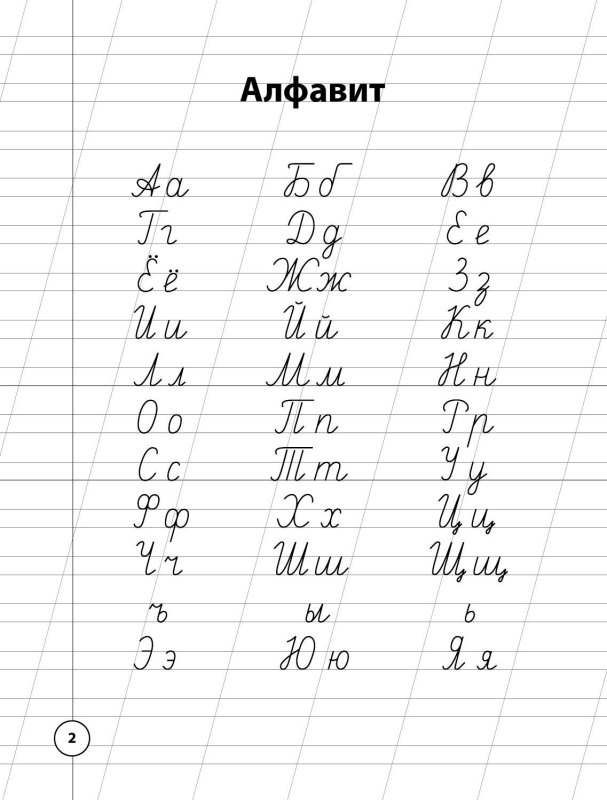 Алфавит
Аа Бб Вв
Гг Дд Ее
Ёё Жж Зз
Ии Йй Кк
Лл Мм Нн
Оо Пп Рр
Сс Тт Уу
Фф Хх Цц
Чч Шш Щщ
ъ ы ь
Ээ Юю Яя
2